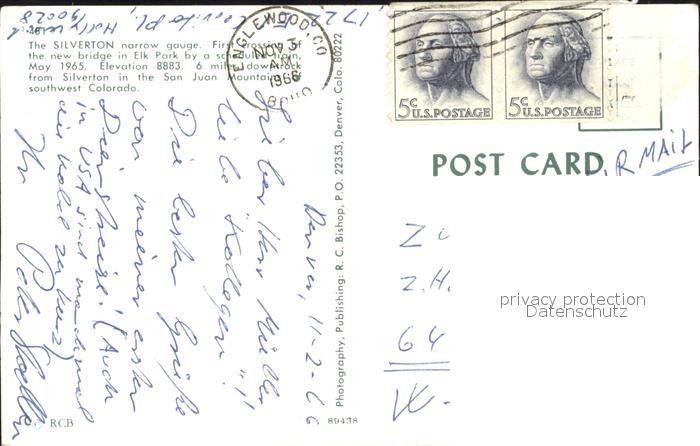 1722
Hollywood
90028
The SILVERTON narrow gauge. First crossing of
the new bridge in Elk Park by a scheduled train,
May 1965. Elevation 8883. 6 miles downtrack
from Silverton in the San Juan Mountains
southwest Colorado.
ENGLEWOOD, CO
NOV 3
AM
1966
5c U.S. POSTAGE
5c U.S. POSTAGE
POST CARD
AIR MAIL
Denver, 11-2-66
Lieber Herr Müller
liebe "Kollegen"!
Die besten Grüße
von meiner ersten
Dienstreise! (Auch
in USA sind manchmal
die Kabel zu kurz)
Ihr Peter
Photography, Publishing: R. C. Bishop, P.O. 22353, Denver, Colo. 80222
z.H.
64
privacy protection
Datenschutz
© RCB
89438